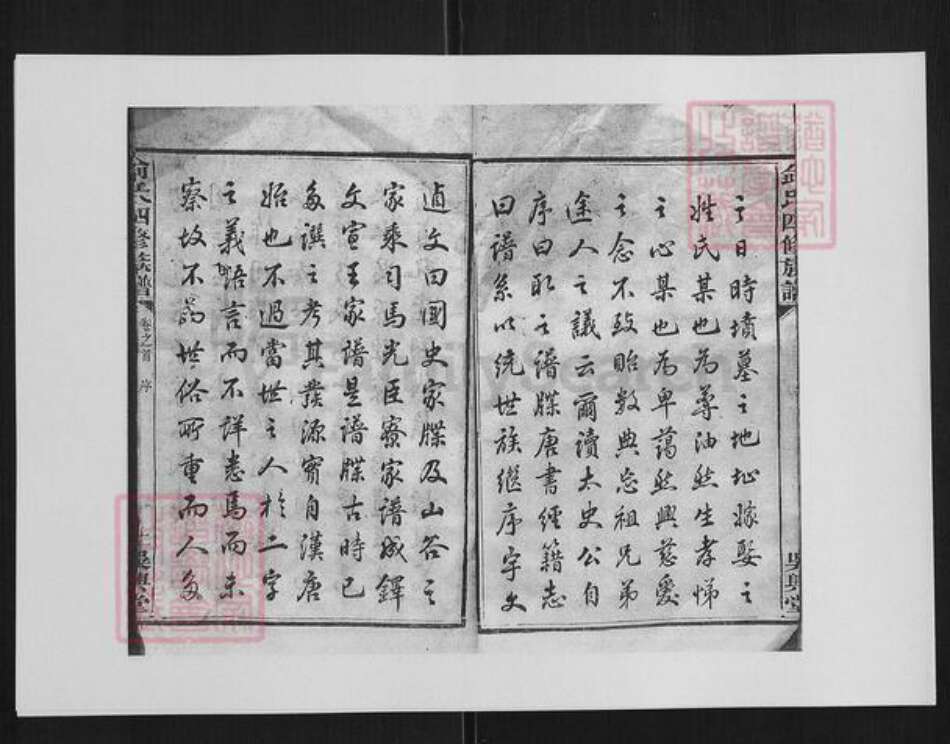 之日時墳墓之地址嫁娶之
姓氏某也為尊油然生孝悌
之心某也為卑藹然興慈愛
之念不致貽數典忘祖兄弟
途人之議云爾讀太史公自
序曰取之譜牒唐書經籍志
曰譜系以統世族繼序宇文
逌文曰國史家牒及山谷之
家乘司馬光臣寮家譜成鐸
文宣王家譜是譜牒古時已
多譔之考其發源實自漢唐
始也不過當世之人於二字
之義語言而不詳悉焉而未
察故不為世俗所重而人多
氏四修族譜
吳興堂
氏四修族譜
卷之首 序
吳興堂